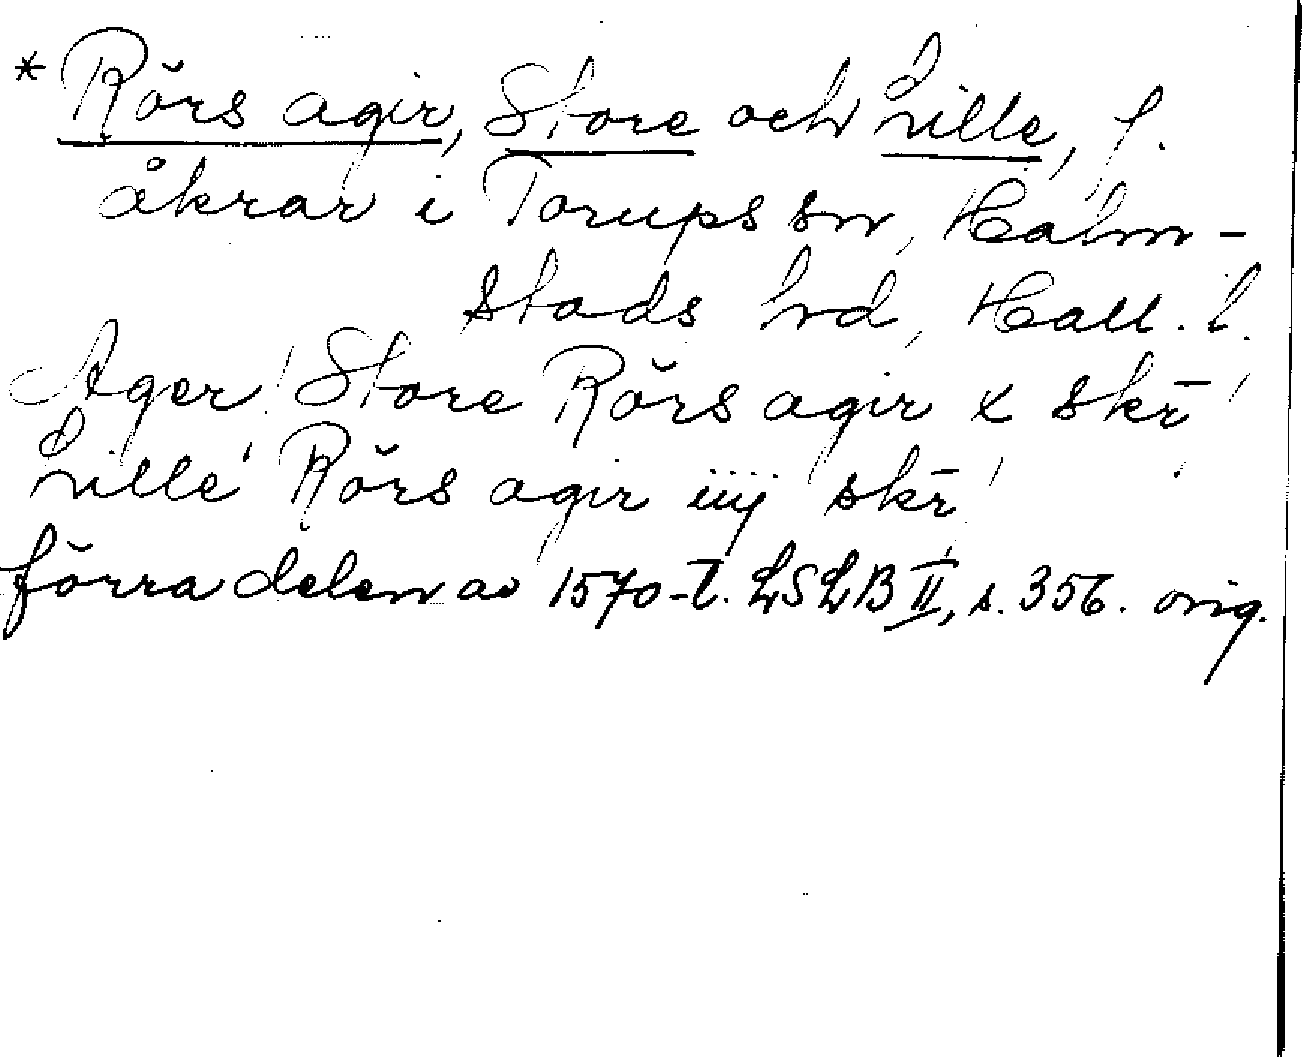 * Rörs agir, Store och Lille, f.
åkrar i Torups sn, Halm-
stads hd, Hall. l.
Ager! Store Rörs agir x skr̄'
Lille' Rörs agir iiij skr̄'
förra delen av 1570-t. LSLB II, s. 356. orig.